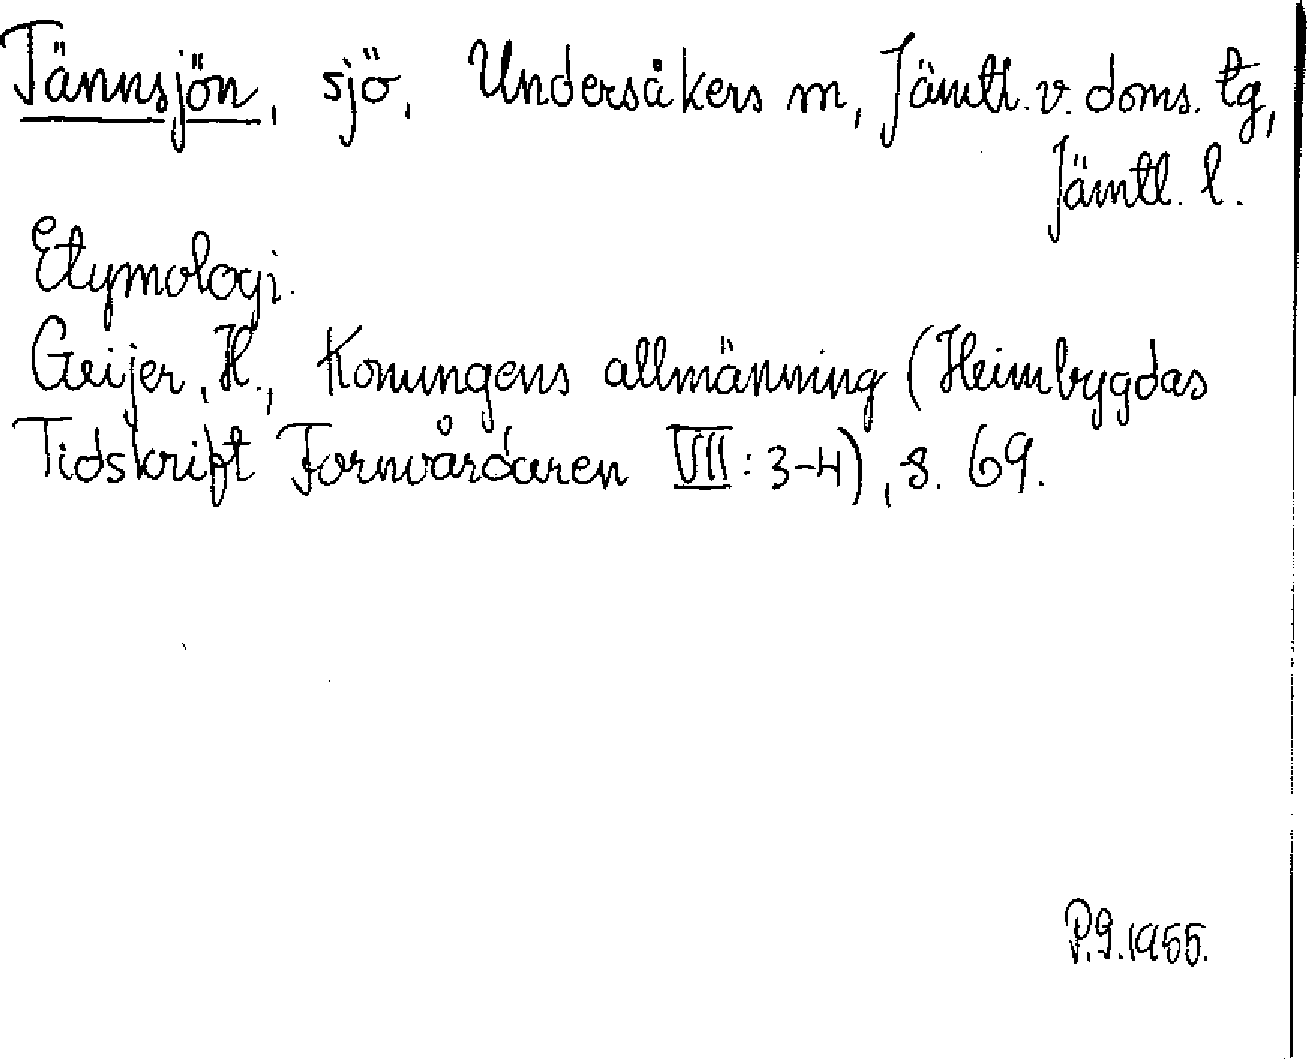 Tännsjön, sjö, Undersåkers m, Jämtl. v. doms. tg,
Jämtl. l.
Etymologi.
Geijer, H., Konungens allmänning (Heimbygdas
Tidskrift Fornvårdaren VII: 3-4), s. 69.
P.G. 1955.